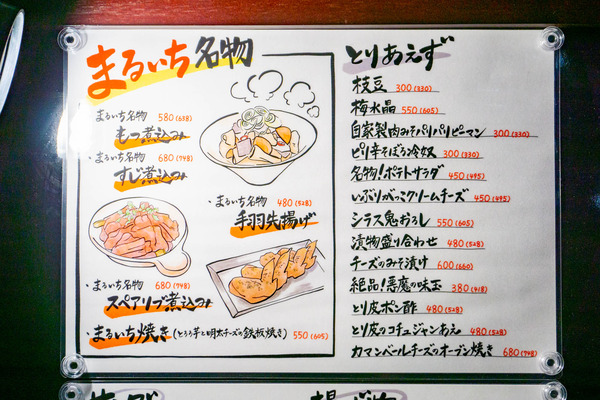 まるいち名物
まるいち名物 580(638)
もつ煮込つみ
まるいち名物 680(748)
すじ煮込つみ
・まるいち名物 480(528)
手羽先揚げ
・まるいち名物 680(748)
スペアリブ煮込つみ
・まるいち焼き(とろろ芋と明太チーズの鉄板焼き) 550(605)
とりあえず
枝豆 300(330)
梅水晶 550(605)
自家製肉みそパリパリピーマン 300(330)
ピリ辛そぼろ冷奴 300(330)
名物!ポテトサラダ 450(495)
いぶりがっこクリームチーズ 450(495)
シラス鬼おろし 550(605)
漬物盛り合わせ 480(528)
チーズのみそ漬け 600(660)
絶品!悪魔の味玉 380(418)
とり皮ポン酢 480(528)
とり皮のコチュジャンあえ 480(528)
カマンベールチーズのオーブン焼き 680(748)